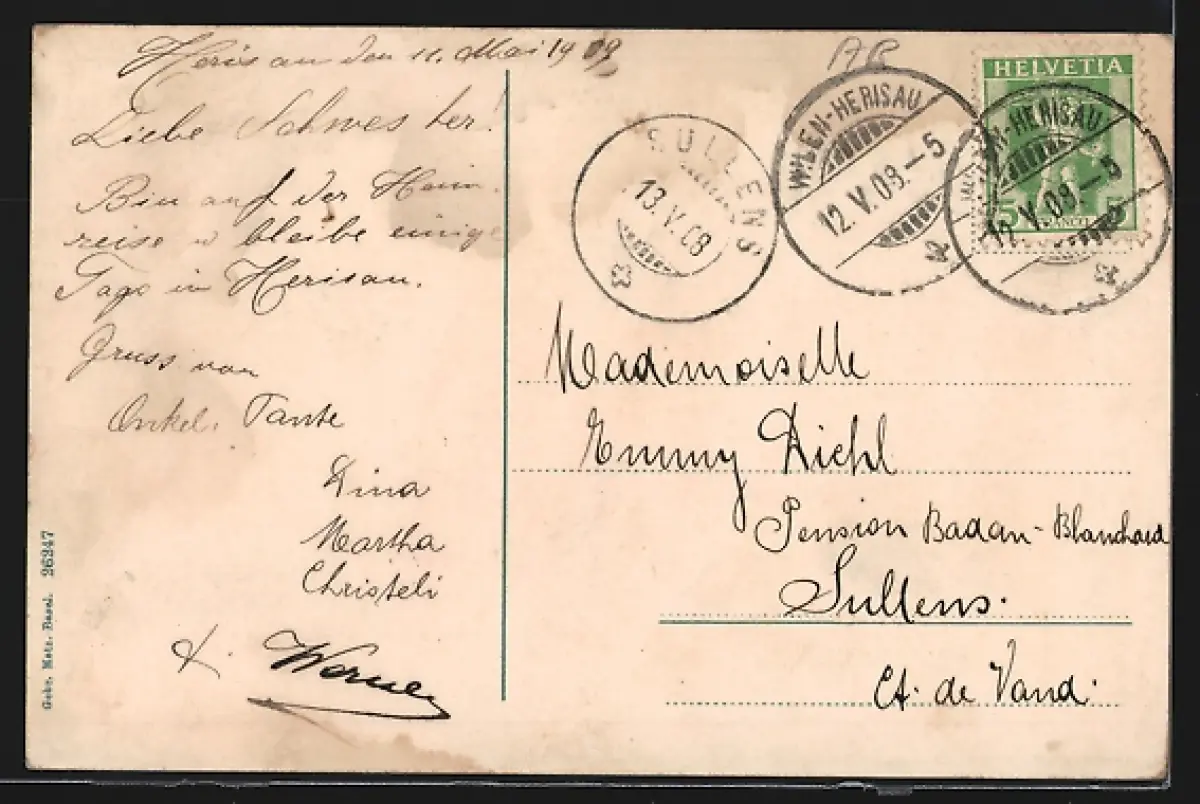 Herisau den 11. Mai 1909
Liebe Schwester!
Bin auf der Heim-
reise u bleibe einige
Tage in Herisau.
Gruss von
Onkel. Tante
Lina
Martha
Christeli
&. Werner
Gebr. Metz. Basel. 26247
AR
SULLENS
13.V.08
WILEN-HERISAU
12.V.08.-5
HELVETIA
5 FRANCO 5
WILEN-HERISAU
12.V.08.-5
Mademoiselle
Emmy Diehl
Pension Badan-Blanchard
Sullens.
Ct. de Vaud.